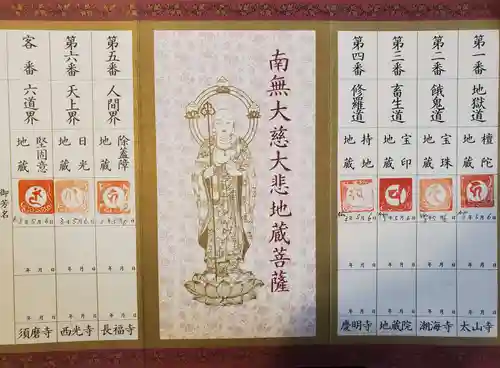 第一番
地獄道
檀陀
地蔵
年 月 日
太山寺
第二番
餓鬼道
宝珠
地蔵
年 月 日
潮海寺
第三番
畜生道
宝印
地蔵
年 月 日
地蔵院
第四番
修羅道
持地
地蔵
年 月 日
慶明寺
南無大慈大悲地蔵菩薩
第五番
人間界
除蓋障
地蔵
年 月 日
長福寺
第六番
天上界
日光
地蔵
年 月 日
西光寺
客番
六道界
堅固意
地蔵
年 月 日
須磨寺
御芳名